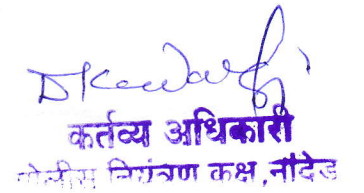 कर्तव्य अधिकारी
पोलीस नियंत्रण कक्ष, नांदेड